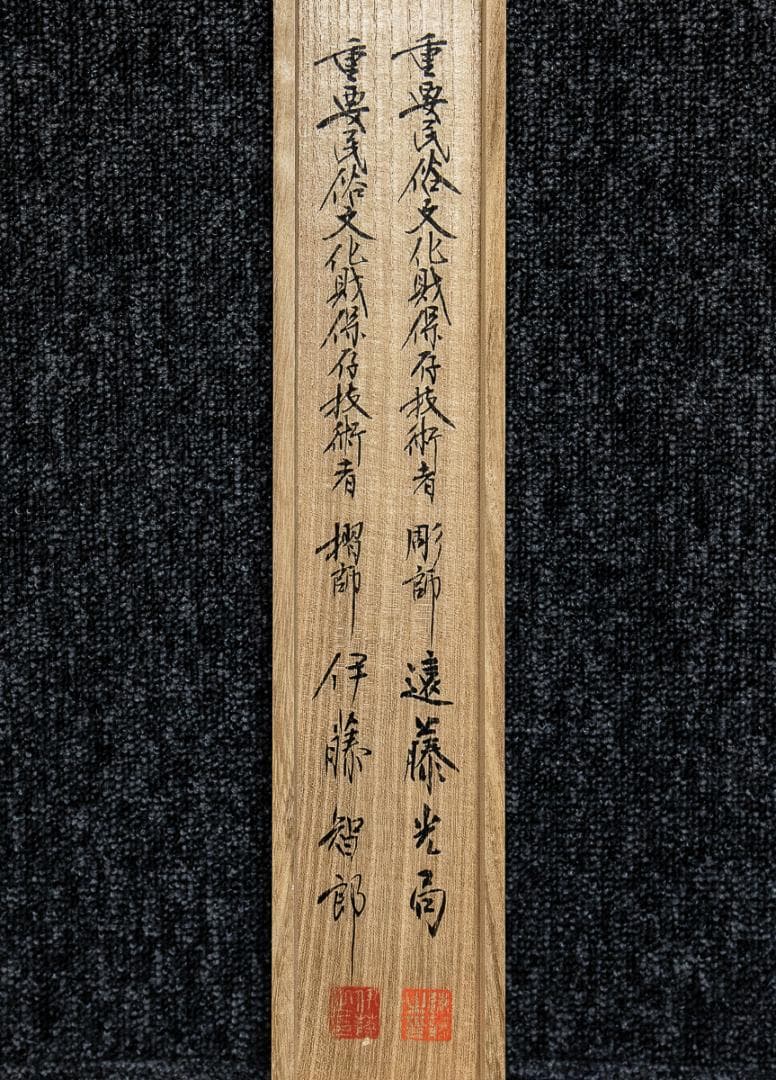 重要民俗文化財保存技術者 彫師 遠藤光局
重要民俗文化財保存技術者 摺師 伊藤智郎